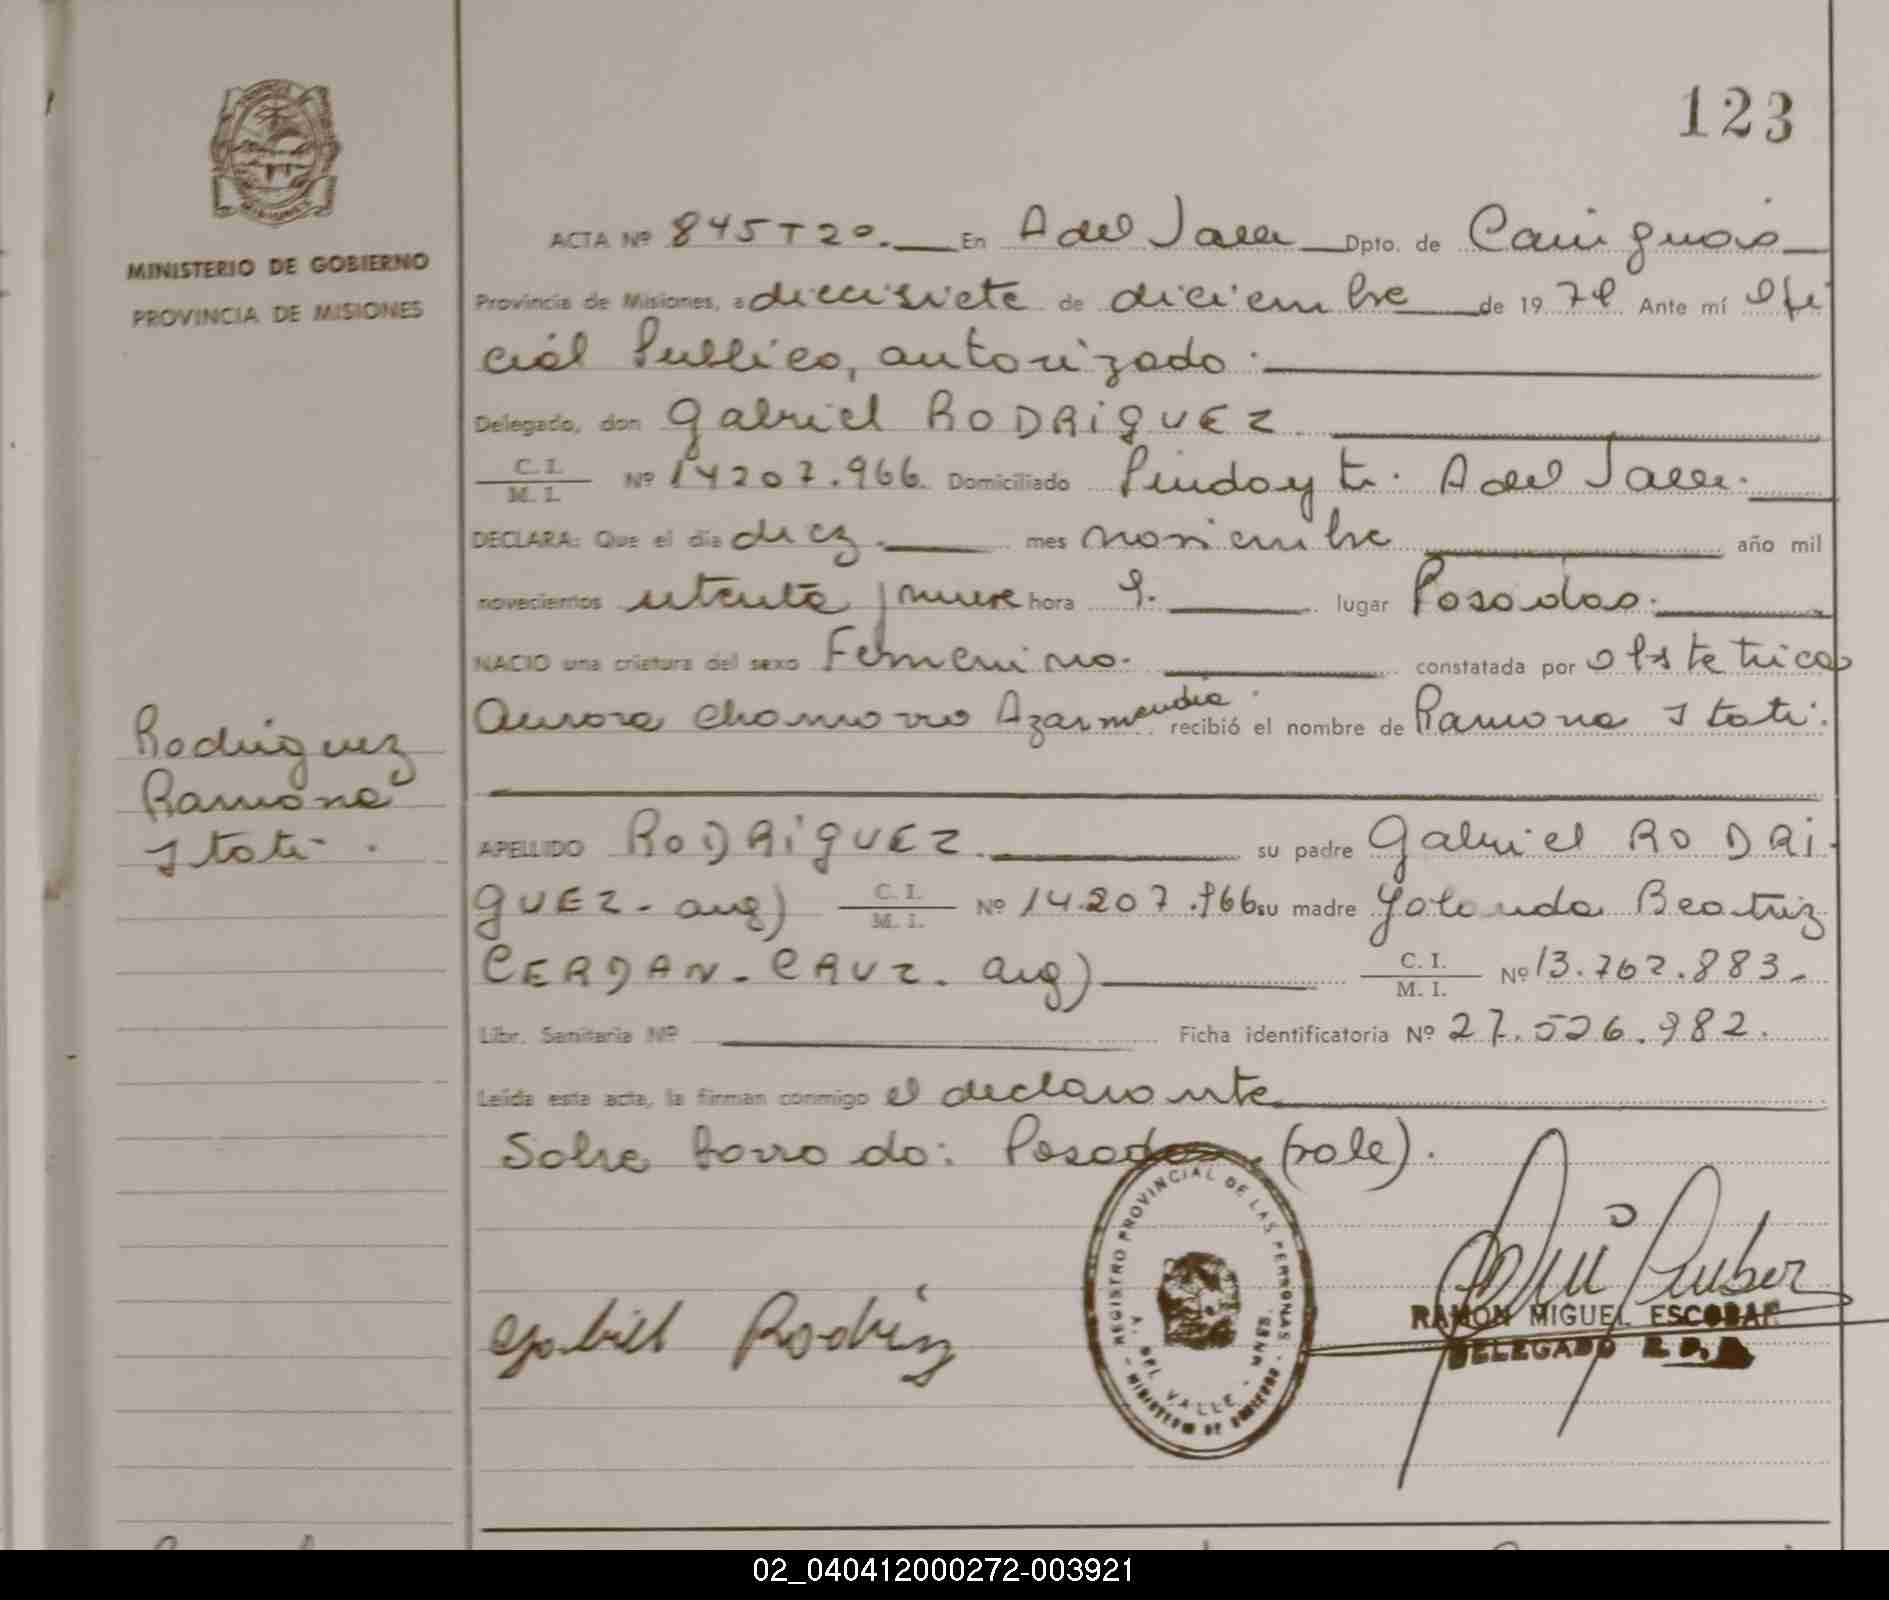 123
MINISTERIO DE GOBIERNO
PROVINCIA DE MISIONES
ACTA Nº 845 T 20. En A del Valle Dpto. de Cainguás
Provincia de Misiones, a diecisiete de diciembre de 19 79 Ante mí Ofi
cial Publico, autorizado.
Delegado, don Gabriel RODRIGUEZ
C. I. / M. I. Nº 14207.966. Domiciliado Pindayti. A del Valle.
DECLARA: Que el dia diez. mes noviembre año mil
novecientos setenta y nueve hora 9. lugar Posadas.
NACIO una criatura del sexo Femenino. constatada por obstetrica
Aurora Chamorro Azarmendia. recibió el nombre de Ramona Itati.
Rodriguez
Ramona
Itati.
APELLIDO RODRIGUEZ. su padre Gabriel RODRI-
GUEZ- arg) C. I. / M. I. Nº 14.207.966 su madre Yolanda Beatriz
CERDAN-CRUZ. arg) C. I. / M. I. Nº 13.762.883.-
Libr. Sanitaria Nº Ficha identificatoria Nº 27.526.982.
Leída esta acta, la firman conmigo el declarante
Sobre borrado: Posadas. (vale).
Gabriel Rodriz
REGISTRO PROVINCIAL DE LAS PERSONAS
A. DEL VALLE
MINISTERIO DE GOBIERNO
RAMON MIGUEL ESCOBAR
DELEGADO R. P. P.
02_040412000272-003921